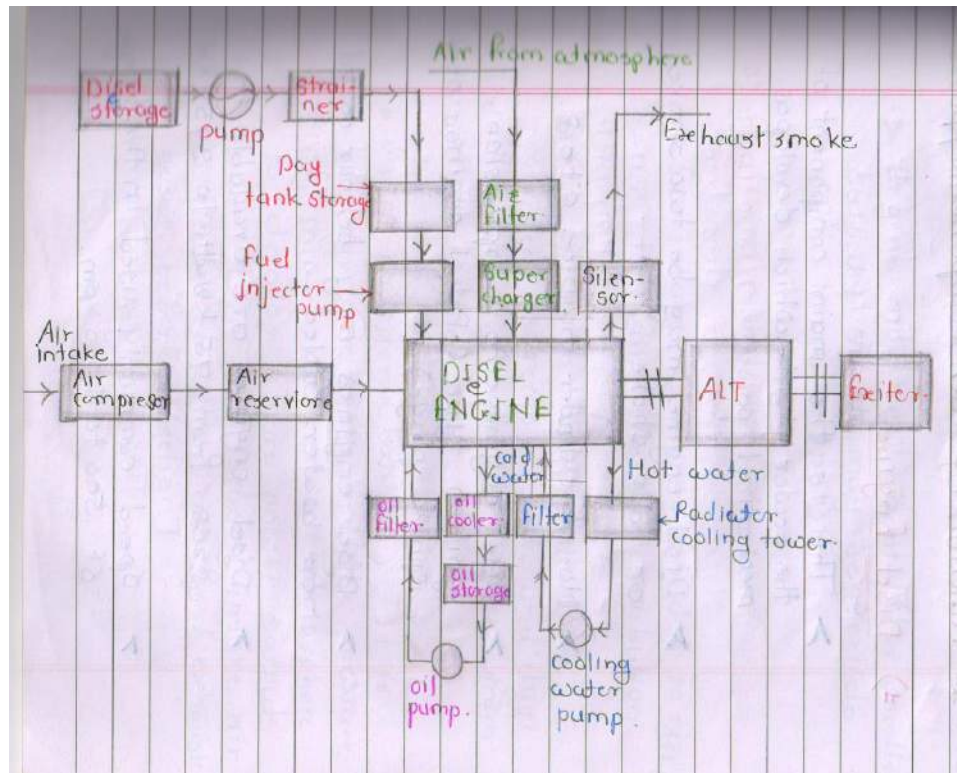 Air from atmosphere
Diesel
storage
pump
Strai-
ner
Exhaust smoke
Day
tank storage
Air
filter
fuel
injector
pump
Super
charger
Silen-
sor.
Air
intake
Air
compresor
Air
reserviore
DIeSEL
ENGINE
ALT
Exciter.
cold
water
Hot water
oil
filter
oil
cooler
filter
Radiator
cooling tower.
oil
storage
oil
pump.
cooling
water
pump.